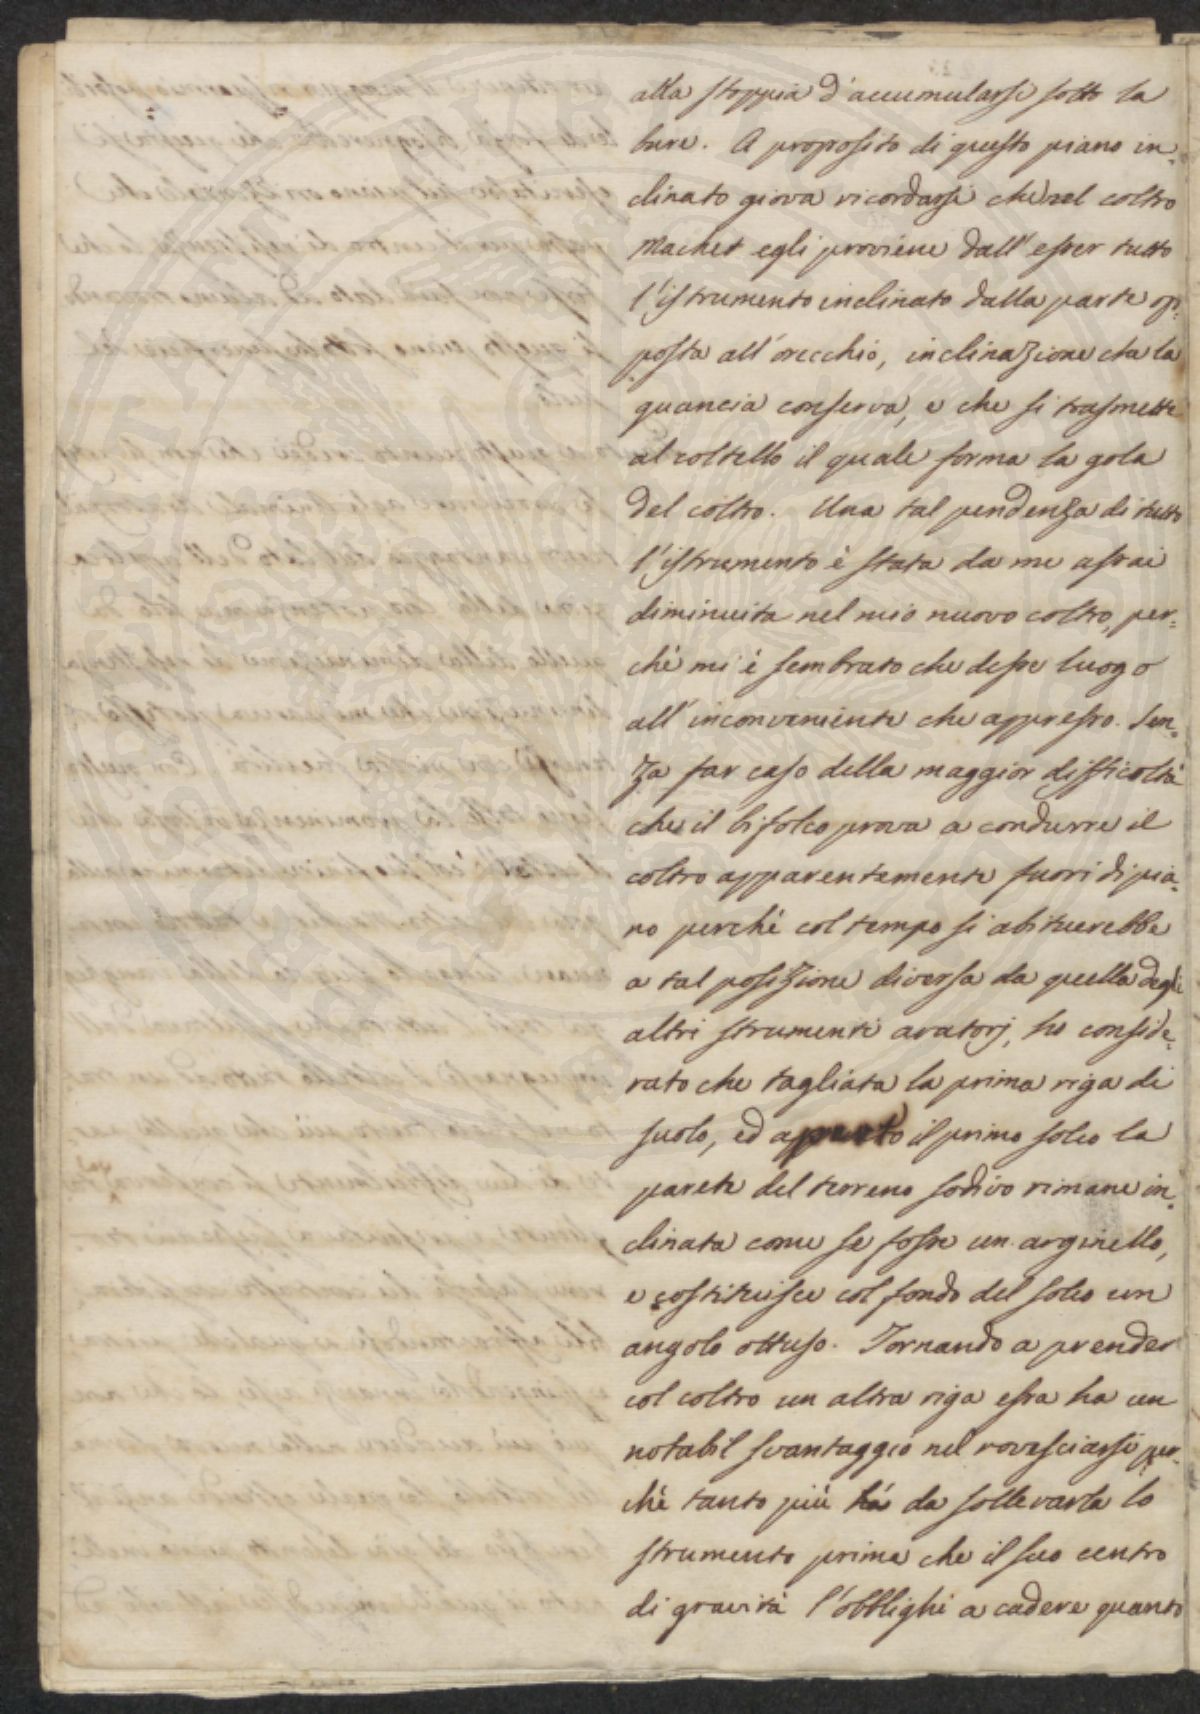 alla stoppia d'accumularsi sotto la
bure. A proposito di questo piano in=
clinato giova ricordarsi che nel coltro
Machet egli proviene dall'esser tutto
l'istrumento inclinato dalla parte op=
posta all'orecchio, inclinazione che la
guancia conserva, e che si trasmette
al coltello il quale forma la gola
del coltro. Una tal pendenza di tutto
l'istrumento è stata da me assai
diminuita nel mio nuovo coltro, per=
chè mi è sembrato che desse luogo
all'inconveniente che appresso. Sen=
za far caso della maggior difficoltà
che il bifolco prova a condurre il
coltro apparentemente fuori di pia=
no perchè col tempo si abituerebbe
a tal posizione diversa da quella degli
altri strumenti aratorj, ho conside=
rato che tagliata la prima riga di
suolo, ed aperto il primo solco la
parete del terreno sodivo rimane in=
clinata come se fosse un arginello,
e costituisce col fondo del solco un
angolo ottuso. Tornando a prender
col coltro un altra riga essa ha un
notabil svantaggio nel rovesciarsi per=
chè tanto più ha da sollevarla lo
strumento prima che il suo centro
di gravità l'obblighi a cadere quanto